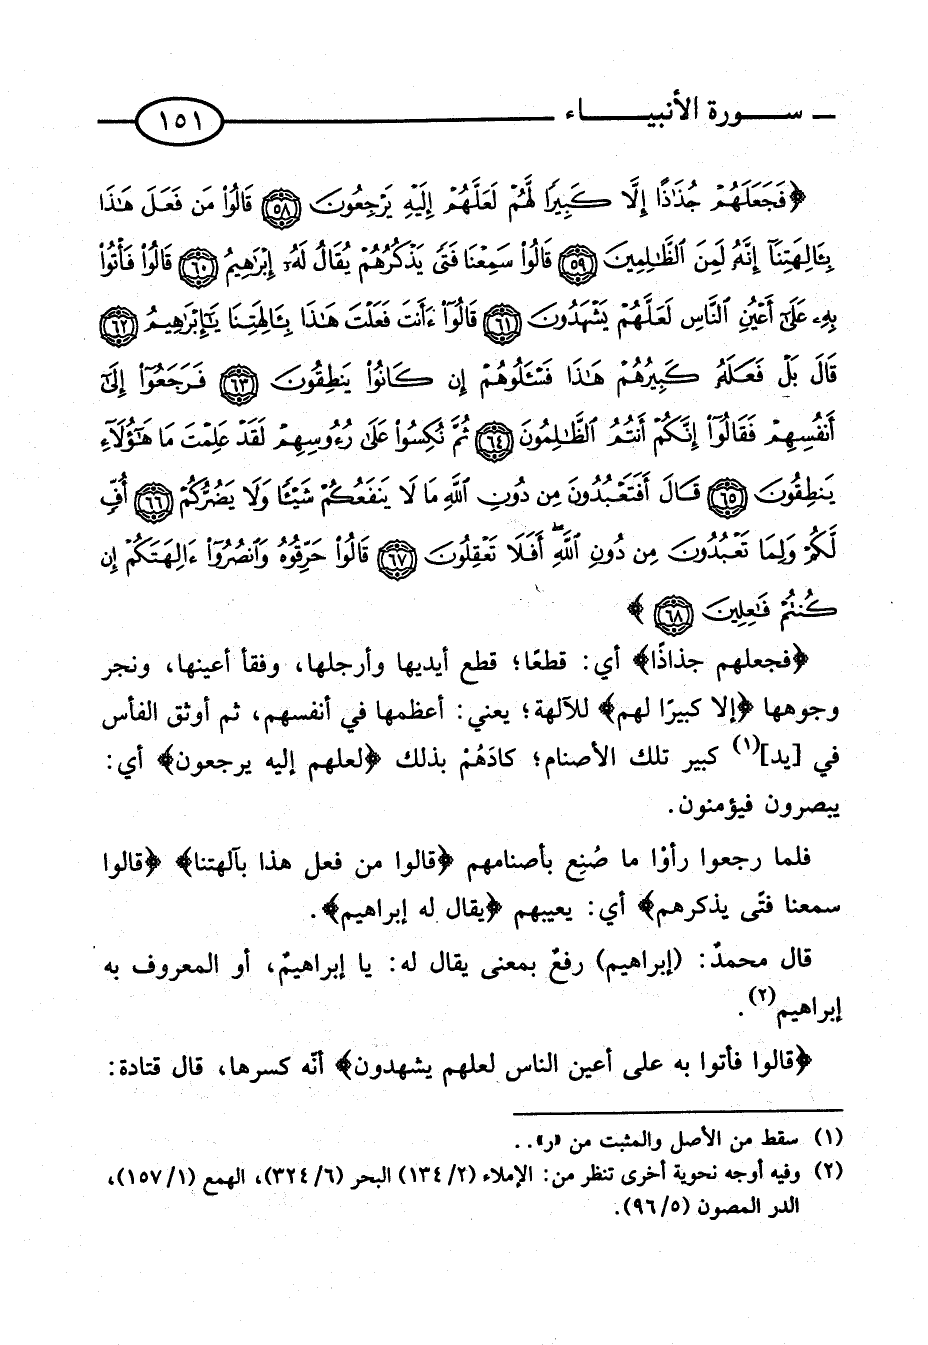 ـ ســـورة الأنبيـــاء ١٥١
﴿فَجَعَلَهُمْ جُذَاذًا إِلَّا كَبِيرًا لَّهُمْ لَعَلَّهُمْ إِلَيْهِ يَرْجِعُونَ ٥٨ قَالُوا۟ مَن فَعَلَ هَـٰذَا
بِـَٔالِهَتِنَآ إِنَّهُۥ لَمِنَ ٱلظَّـٰلِمِينَ ٥٩ قَالُوا۟ سَمِعْنَا فَتًى يَذْكُرُهُمْ يُقَالُ لَهُۥٓ إِبْرَٰهِيمُ ٦٠ قَالُوا۟ فَأْتُوا۟
بِهِۦ عَلَىٰٓ أَعْيُنِ ٱلنَّاسِ لَعَلَّهُمْ يَشْهَدُونَ ٦١ قَالُوٓا۟ ءَأَنتَ فَعَلْتَ هَـٰذَا بِـَٔالِهَتِنَا يَـٰٓإِبْرَٰهِيمُ ٦٢
قَالَ بَلْ فَعَلَهُۥ كَبِيرُهُمْ هَـٰذَا فَسْـَٔلُوهُمْ إِن كَانُوا۟ يَنطِقُونَ ٦٣ فَرَجَعُوٓا۟ إِلَىٰٓ
أَنفُسِهِمْ فَقَالُوٓا۟ إِنَّكُمْ أَنتُمُ ٱلظَّـٰلِمُونَ ٦٤ ثُمَّ نُكِسُوا۟ عَلَىٰ رُءُوسِهِمْ لَقَدْ عَلِمْتَ مَا هَـٰٓؤُلَآءِ
يَنطِقُونَ ٦٥ قَالَ أَفَتَعْبُدُونَ مِن دُونِ ٱللَّهِ مَا لَا يَنفَعُكُمْ شَيْـًٔا وَلَا يَضُرُّكُمْ ٦٦ أُفٍّ
لَّكُمْ وَلِمَا تَعْبُدُونَ مِن دُونِ ٱللَّهِ ۖ أَفَلَا تَعْقِلُونَ ٦٧ قَالُوا۟ حَرِّقُوهُ وَٱنصُرُوٓا۟ ءَالِهَتَكُمْ إِن
كُنتُمْ فَـٰعِلِينَ ٦٨﴾
﴿فجعلهم جذاذًا﴾ أي: قطعًا؛ قطع أيديها وأرجلها، وفقأ أعينها، ونجر
وجوهها ﴿إلا كبيرًا لهم﴾ للآلهة؛ يعني: أعظمها في أنفسهم، ثم أوثق الفأس
في [يد](١) كبير تلك الأصنام؛ كادَهُمْ بذلك ﴿لعلهم إليه يرجعون﴾ أي:
يبصرون فيؤمنون.
فلما رجعوا رأوْا ما صُنِع بأصنامهم ﴿قالوا من فعل هذا بآلهتنا﴾ ﴿قالوا
سمعنا فتًى يذكرهم﴾ أي: يعيبهم ﴿يقال له إبراهيم﴾.
قال محمدٌ: (إبراهيم) رفعٌ بمعنى يقال له: يا إبراهيمُ، أو المعروف به
إبراهيم(٢).
﴿قالوا فأتوا به على أعين الناس لعلهم يشهدون﴾ أنّه كسرها، قال قتادة:
(١) سقط من الأصل والمثبت من «ر»..
(٢) وفيه أوجه نحوية أخرى تنظر من: الإملاء (٢/ ١٣٤) البحر (٦/ ٣٢٤)، الهمع (١/ ١٥٧)،
الدر المصون (٥/ ٩٦).